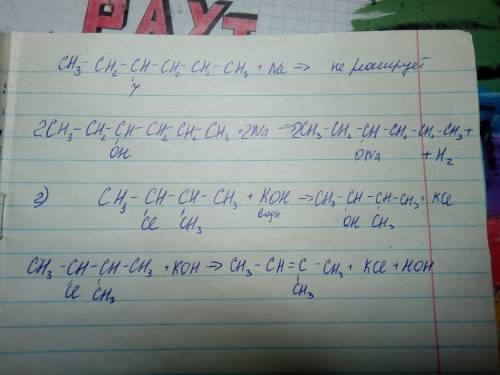 РАУТ
CH₃ - CH₂ - CH - CH₂ - CH₂ - CH₃ + Na => не реагирует
2CH₃ - CH₂ - CH - CH₂ - CH₂ - CH₃ + 2Na => 2CH₃ - CH₂ - CH - CH₂ - CH₂ - CH₃ +
OH ONa + H₂
2) CH₃ - CH - CH - CH₃ + KOH => CH₃ - CH - CH - CH₃ + KCl
Cl CH₃ водн OH CH₃
CH₃ - CH - CH - CH₃ + KOH => CH₃ - CH = C - CH₃ + KCl + HOH
Cl CH₃ CH₃